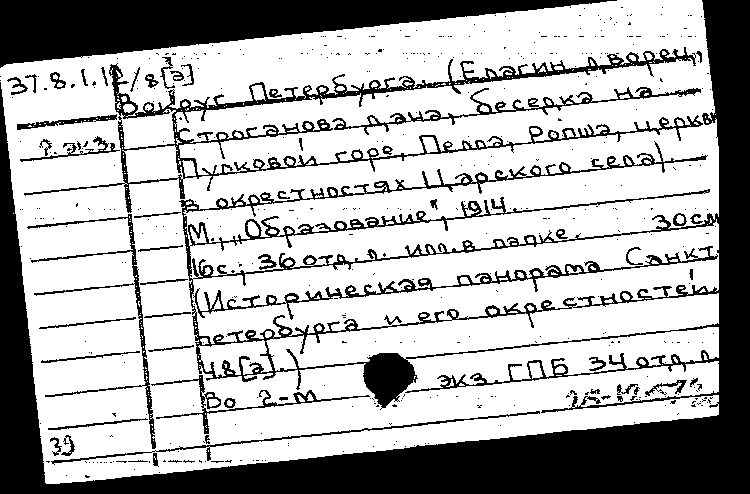 37.8.1.12/8[а]
Вокруг Петербурга. (Елагин дворец,
Строганова дача, беседка на
2 экз.
Пулковой горе, Пелла, Ропша, церкви
в окрестностях Царского села).
М., „Образование", 1914.
16с.; 36 отд.л. илл. в папке. 30см
(Историческая панорама Санкт-
петербурга и его окрестностей.
ч.8[а].)
Во 2-м экз. ГПБ 34 отд.л.
39